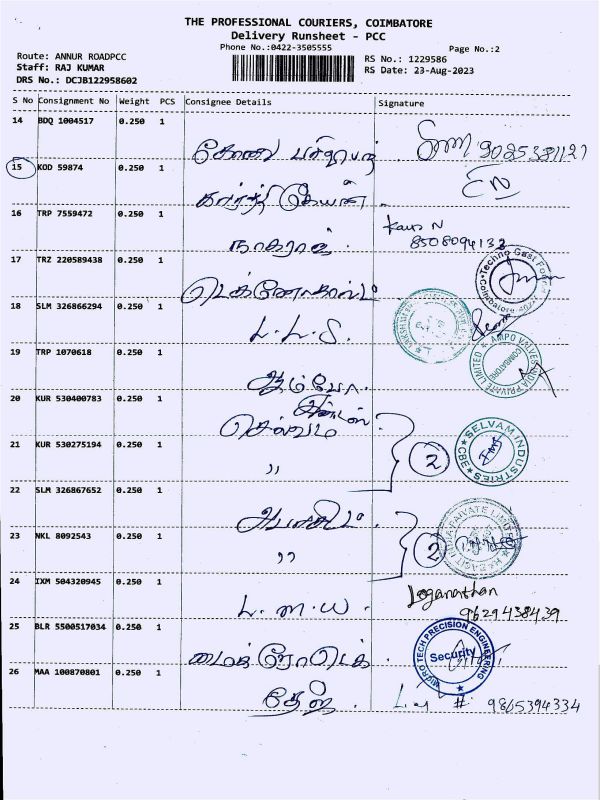 THE PROFESSIONAL COURIERS, COIMBATORE
Delivery Runsheet - PCC
Phone No.:0422-3505555
Page No.:2
Route: ANNUR ROADPCC
Staff: RAJ KUMAR
DRS No.: DCJB122958602
RS No.: 1229586
RS Date: 23-Aug-2023
S No Consignment No Weight PCS Consignee Details Signature
14 BDQ 1004517 0.250 1
கோவை 9085381127
15 KOD 59874 0.250 1
கார்த்தி
16 TRP 7559472 0.250 1
நாகராஜ் 8508094132
17 TRZ 220589438 0.250 1
டெக்னோகாஸ்ட் Techno Cast Coimbatore
18 SLM 326866294 0.250 1
L.L.S.
19 TRP 1070618 0.250 1
ஆம்போ AMPO VALVES INDIA PRIVATE LIMITED COIMBATORE
20 KUR 530400783 0.250 1
செல்வம்
21 KUR 530275194 0.250 1
,, 2 SELVAM INDUSTRIES CBE
22 SLM 326867652 0.250 1
23 NKL 8092543 0.250 1
,, 2 INDIA PRIVATE LIMITED
24 IXM 504320945 0.250 1
L.M.W. Loganathan
9629438439
25 BLR 5500517034 0.250 1
மைக்ரோடெக் MICRO TECH PRECISION ENGINEERING Security
26 MAA 100870801 0.250 1
தேஜ் 9865394334